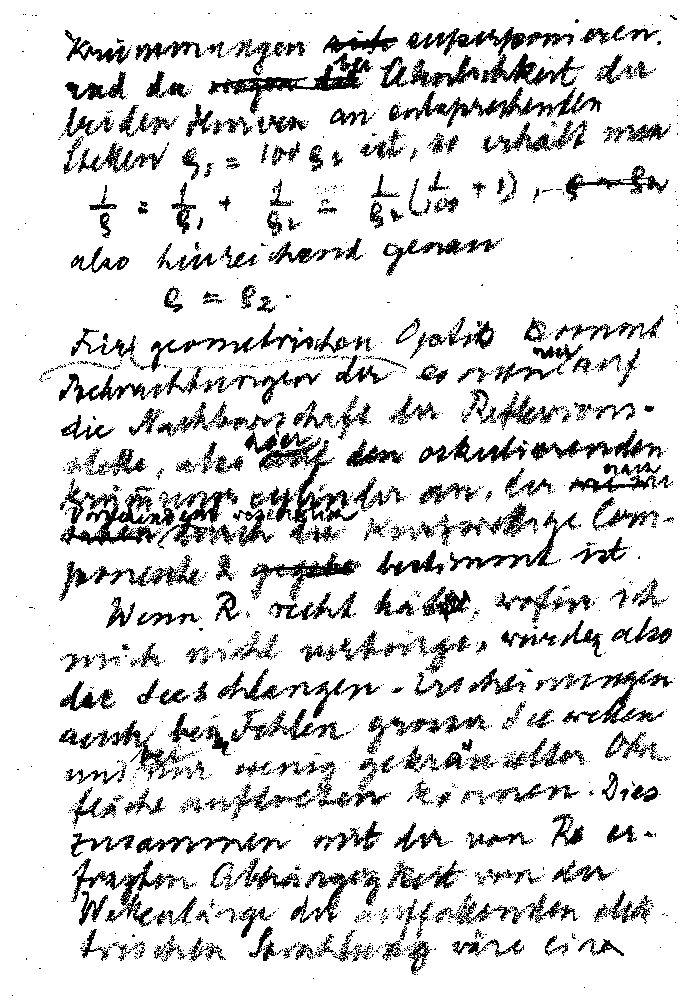 Krümmungen superponieren.
und da bei Ähnlichkeit der
beiden Kurven an entsprechenden
Stellen ρ₁ = 100 ρ₂ ist, so erhält man
1/ρ = 1/ρ₁ + 1/ρ₂ = 1/ρ₂ (1/100 + 1),
also hinreichend genau
ρ = ρ₂.
geometrischen Optik kommt
Betrachtungen der es nun nur auf
die Nachbarschaft der Reflexions-
stelle, also auf den oskulierenden
Krümmungscylinder an, der nach
durch die kurzwellige Com-
ponente 2 bestimmt ist.
Wenn R. recht hätte, wofür ich
mich nicht verbürge, würden also
die Seeschlangen-Erscheinungen
auch bei Fehlen grosser Seewellen
und bei nur wenig gekräuselter Ober
fläche auftreten können. Dies
zusammen mit der von R. er-
fragten Abhängigkeit von der
Wellenlänge der auffallenden elek
trischen Strahlung wäre eine